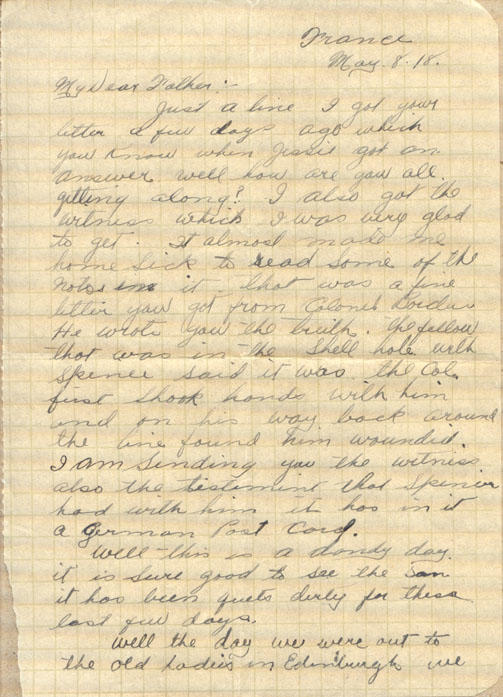 France
May. 8. 18.
My Dear Father:-
Just a line I got your
letter a few days ago which
you know when Jessie got an
answer well how are you all.
getting along? I also got the
witness which I was very glad
to get. It almost made me
home sick to read some of the
notes in it. that was a fine
letter you got from Colonel
He wrote you the truth. the fellow
that was in the shell hole with
Spencer said it was the Col.
first shook hands with him
and on his way back around
the line found him wounded.
I am sending you the witness
also the testiment that Spencer
had with him it has in it
a German Post Card.
Well this is a dandy day.
it is sure good to see the sun
it has been quete dirty for these
last few days.
well the day we were out to
the old Ladies in Edinburgh we